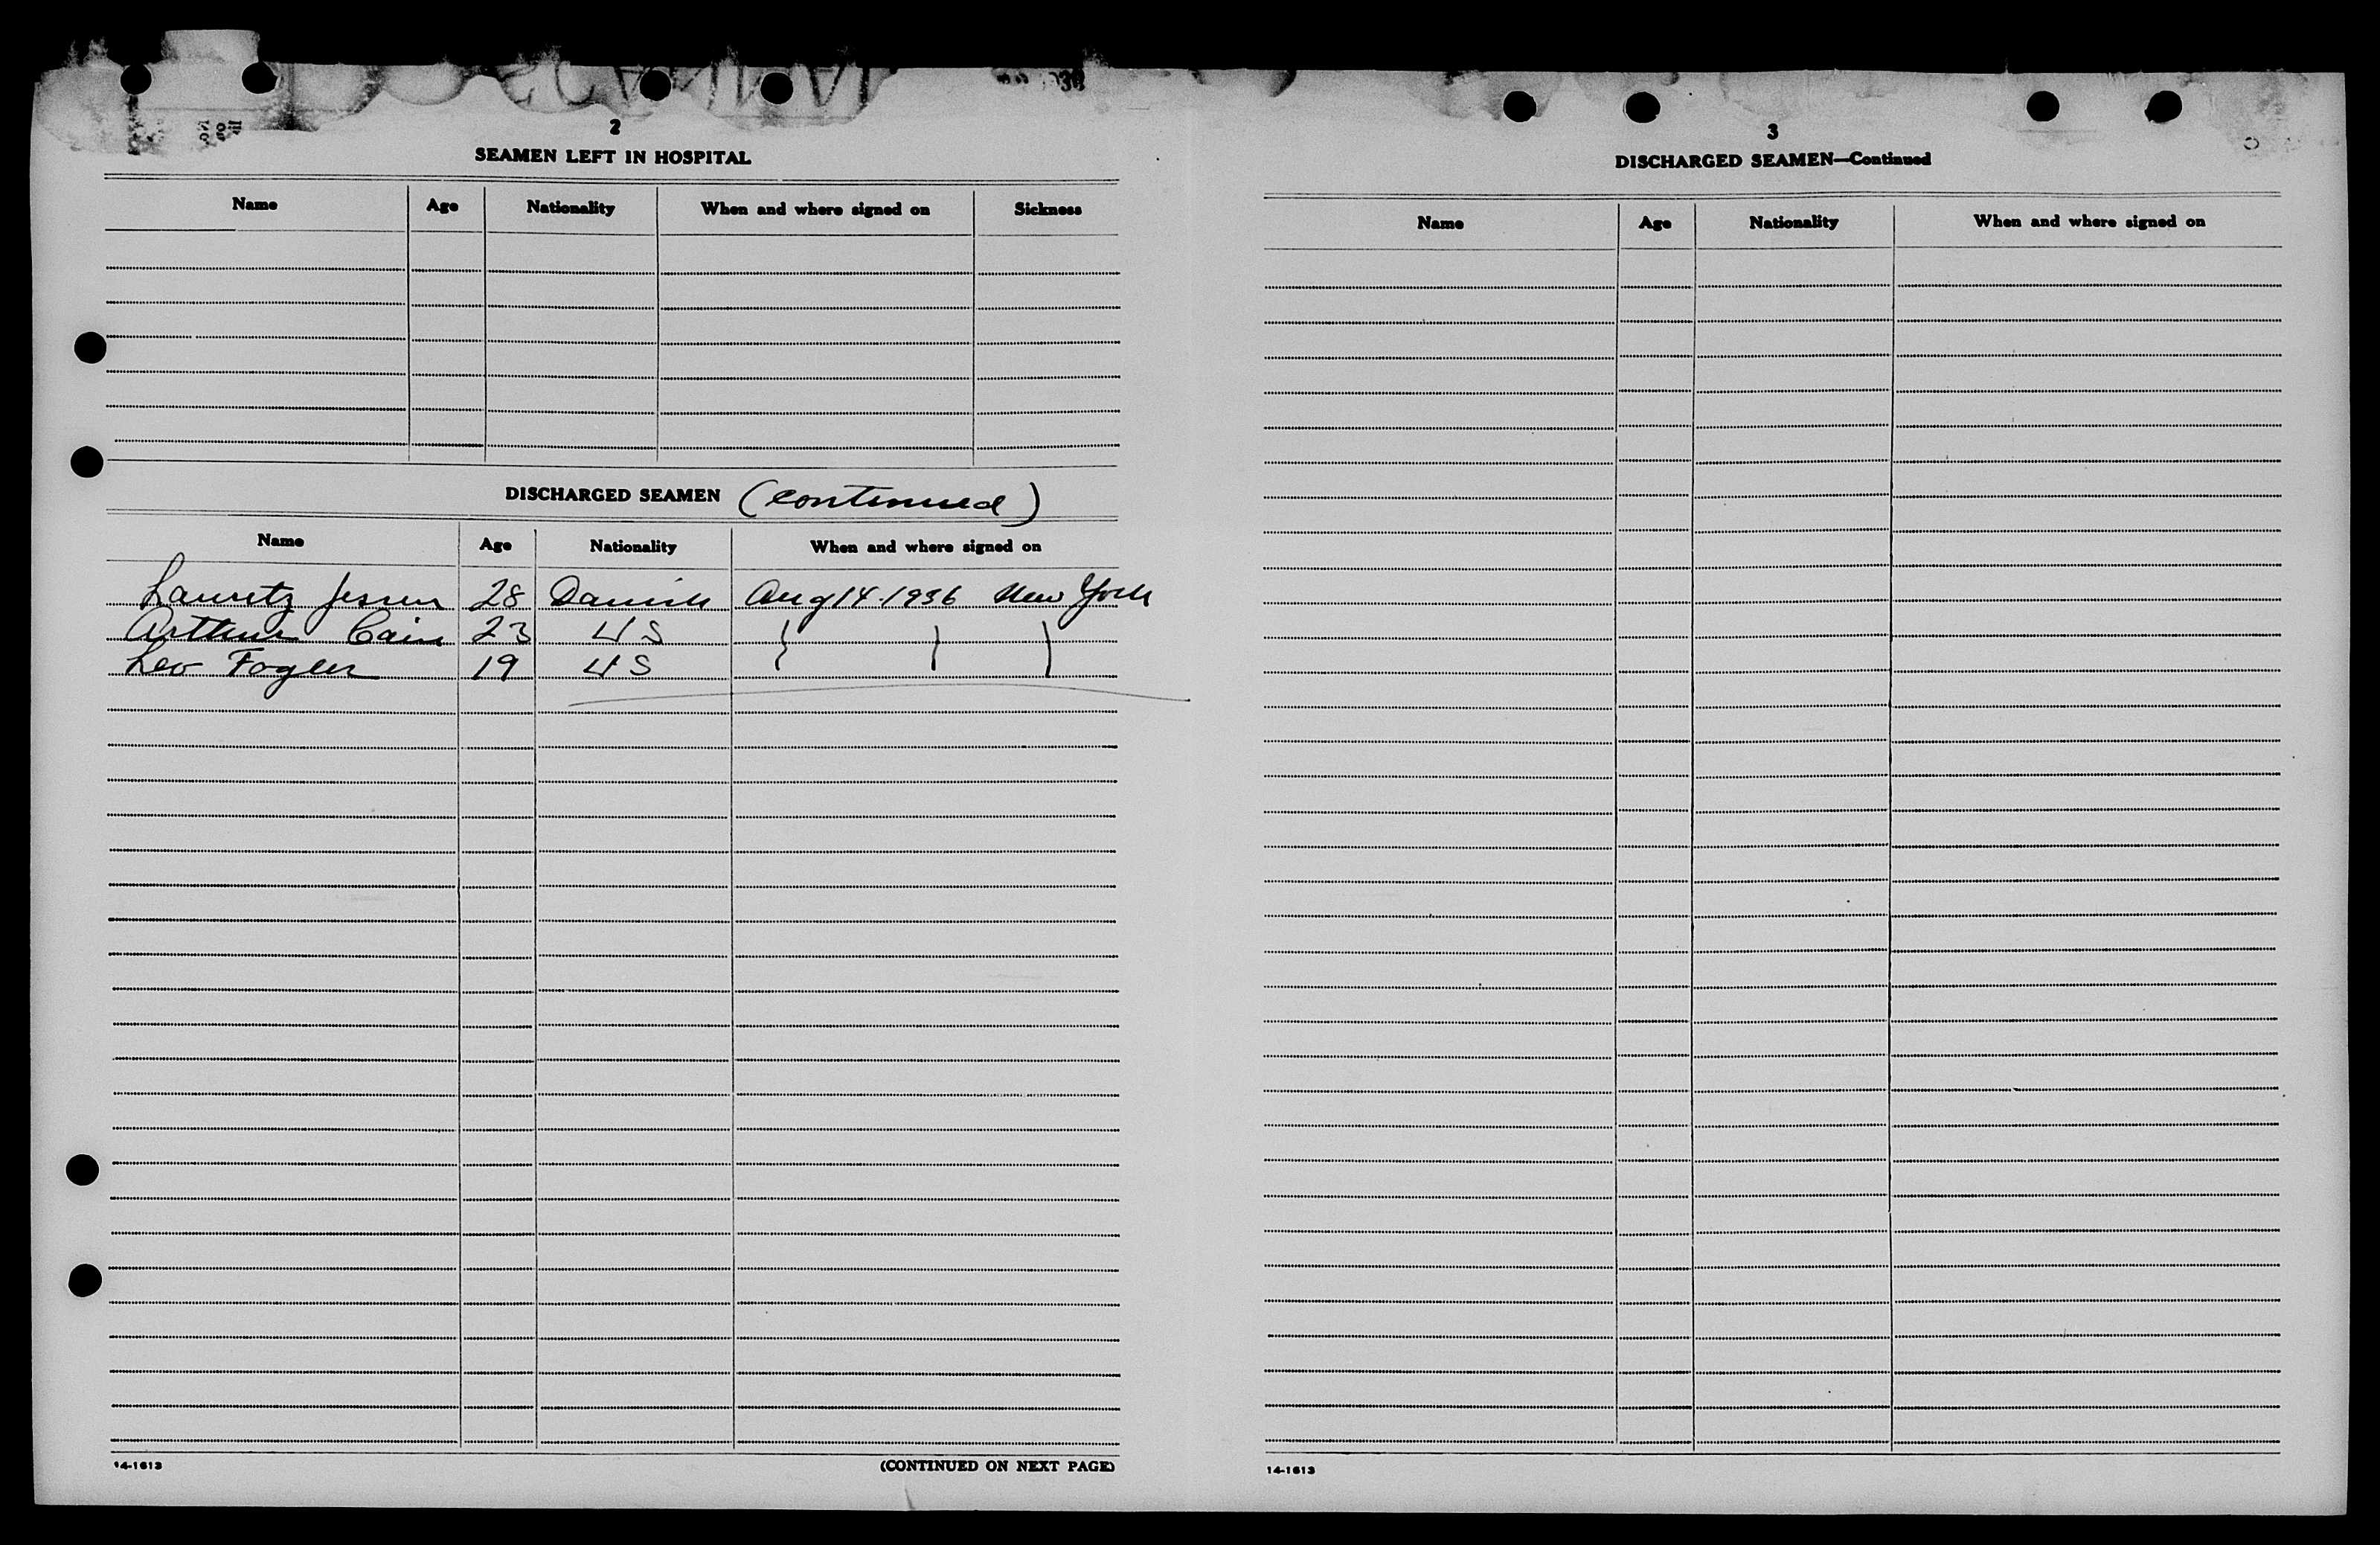 2
SEAMEN LEFT IN HOSPITAL
Name Age Nationality When and where signed on Sickness
DISCHARGED SEAMEN (continued)
Name Age Nationality When and where signed on
Lauritz Jessen 28 Danish Aug 14-1936 New York
Arthur Cain 23 US
Leo Fogler 19 US
14-1613
(CONTINUED ON NEXT PAGE)
3
DISCHARGED SEAMEN—Continued
Name Age Nationality When and where signed on
14-1613